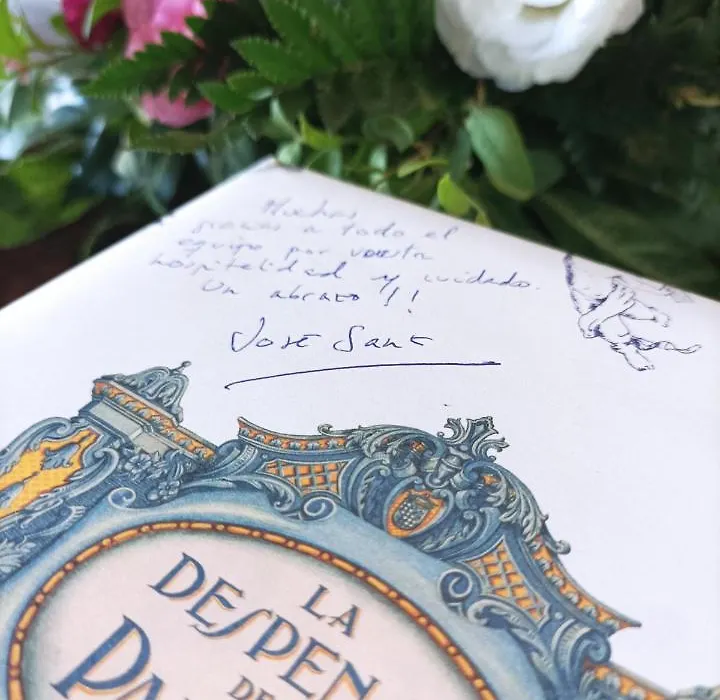 Muchas
gracias a todo el
equipo por vuestra
hospitalidad y cuidado.
Un abrazo!!
José Sanc
LA
DESPEN
DE
PA